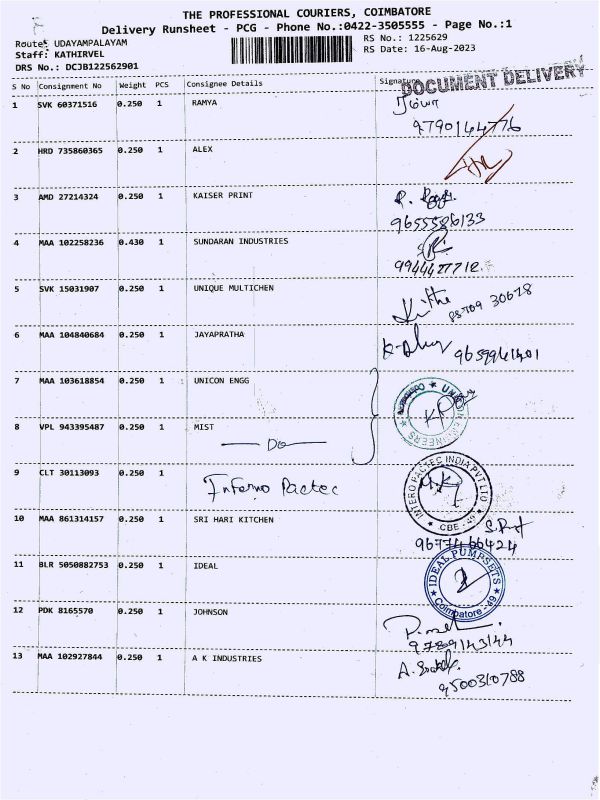 THE PROFESSIONAL COURIERS, COIMBATORE
Delivery Runsheet - PCG - Phone No.:0422-3505555 - Page No.:1
Route: UDAYAMPALAYAM
RS No.: 1225629
Staff: KATHIRVEL
RS Date: 16-Aug-2023
DRS No.: DCJB122562901
S No Consignment No Weight PCS Consignee Details Signature
DOCUMENT DELIVERY
1 SVK 60371516 0.250 1 RAMYA ரம்யா
9790144776
2 HRD 735860365 0.250 1 ALEX
3 AMD 27214324 0.250 1 KAISER PRINT
9655586133
4 MAA 102258236 0.430 1 SUNDARAN INDUSTRIES
9944427712
5 SVK 15031907 0.250 1 UNIQUE MULTICHEN
88709 30678
6 MAA 104840684 0.250 1 JAYAPRATHA
9659961401
7 MAA 103618854 0.250 1 UNICON ENGG
8 VPL 943395487 0.250 1 MIST
— Do —
9 CLT 30113093 0.250 1 Inferno Pactec
INTERO PACTEC INDIA PVT LTD
★ CBE - 49 ★
10 MAA 861314157 0.250 1 SRI HARI KITCHEN
9677466424
11 BLR 5050882753 0.250 1 IDEAL
IDEAL PUMPSETS
Coimbatore - 49
12 PDK 8165570 0.250 1 JOHNSON
9789143144
13 MAA 102927844 0.250 1 A K INDUSTRIES
9500310788